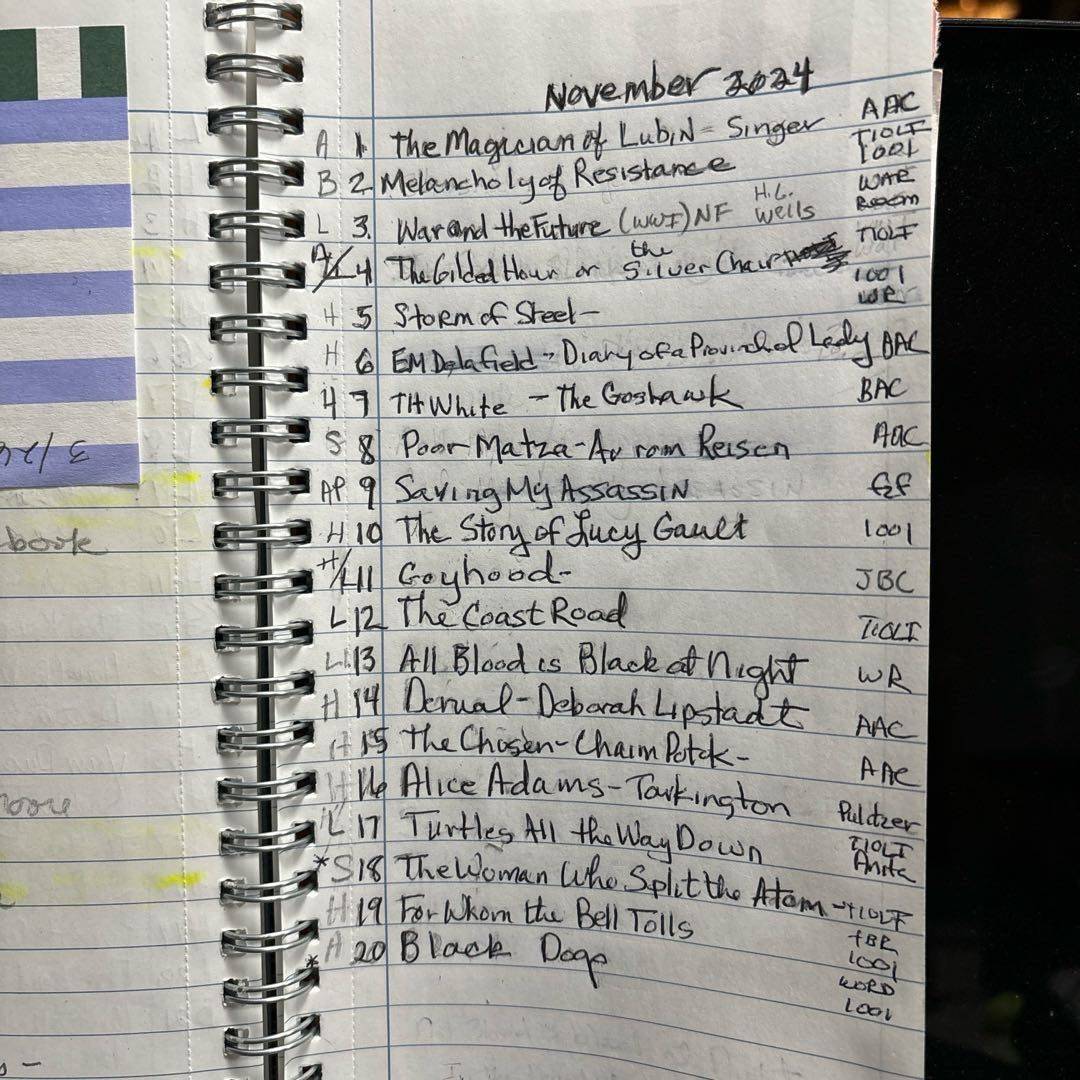 November 2024
AAC
A 1. The Magician of Lubin - Singer TIOLI
1001
B 2 Melancholy of Resistance
WAR
Room
L 3. War and the Future (WWI) NF H.G. Wells
TIOLI
A/L 4 The Gilded Hour or the Silver Chair
1001
WR
H 5 Storm of Steel -
H 6 EM Delafield - Diary of a Provincial Lady BAC
H 7 TH White - The Goshawk BAC
S 8 Poor Matza - Av rom Reisen AAC
AP 9 Saving My Assassin
H 10 The Story of Lucy Gault 1001
H/L 11 Goyhood - JBC
L 12 The Coast Road TIOLI
L 13 All Blood is Black at Night WR
H 14 Denial - Deborah Lipstadt AAC
H 15 The Chosen - Chaim Potok - AAC
H 16 Alice Adams - Tarkington Pulitzer
L 17 Turtles All the Way Down TIOLI
Anita
*S 18 The Woman Who Split the Atom - TIOLI
H 19 For Whom the Bell Tolls TBR
1001
*A 20 Black Dogs WORD
1001
book
3/24